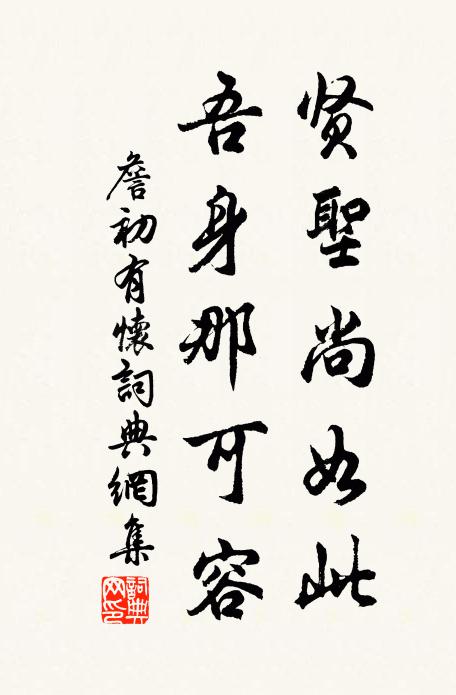 贤聖尚如此
吾身那可容
詹初有懷詞典網集
詞典網印